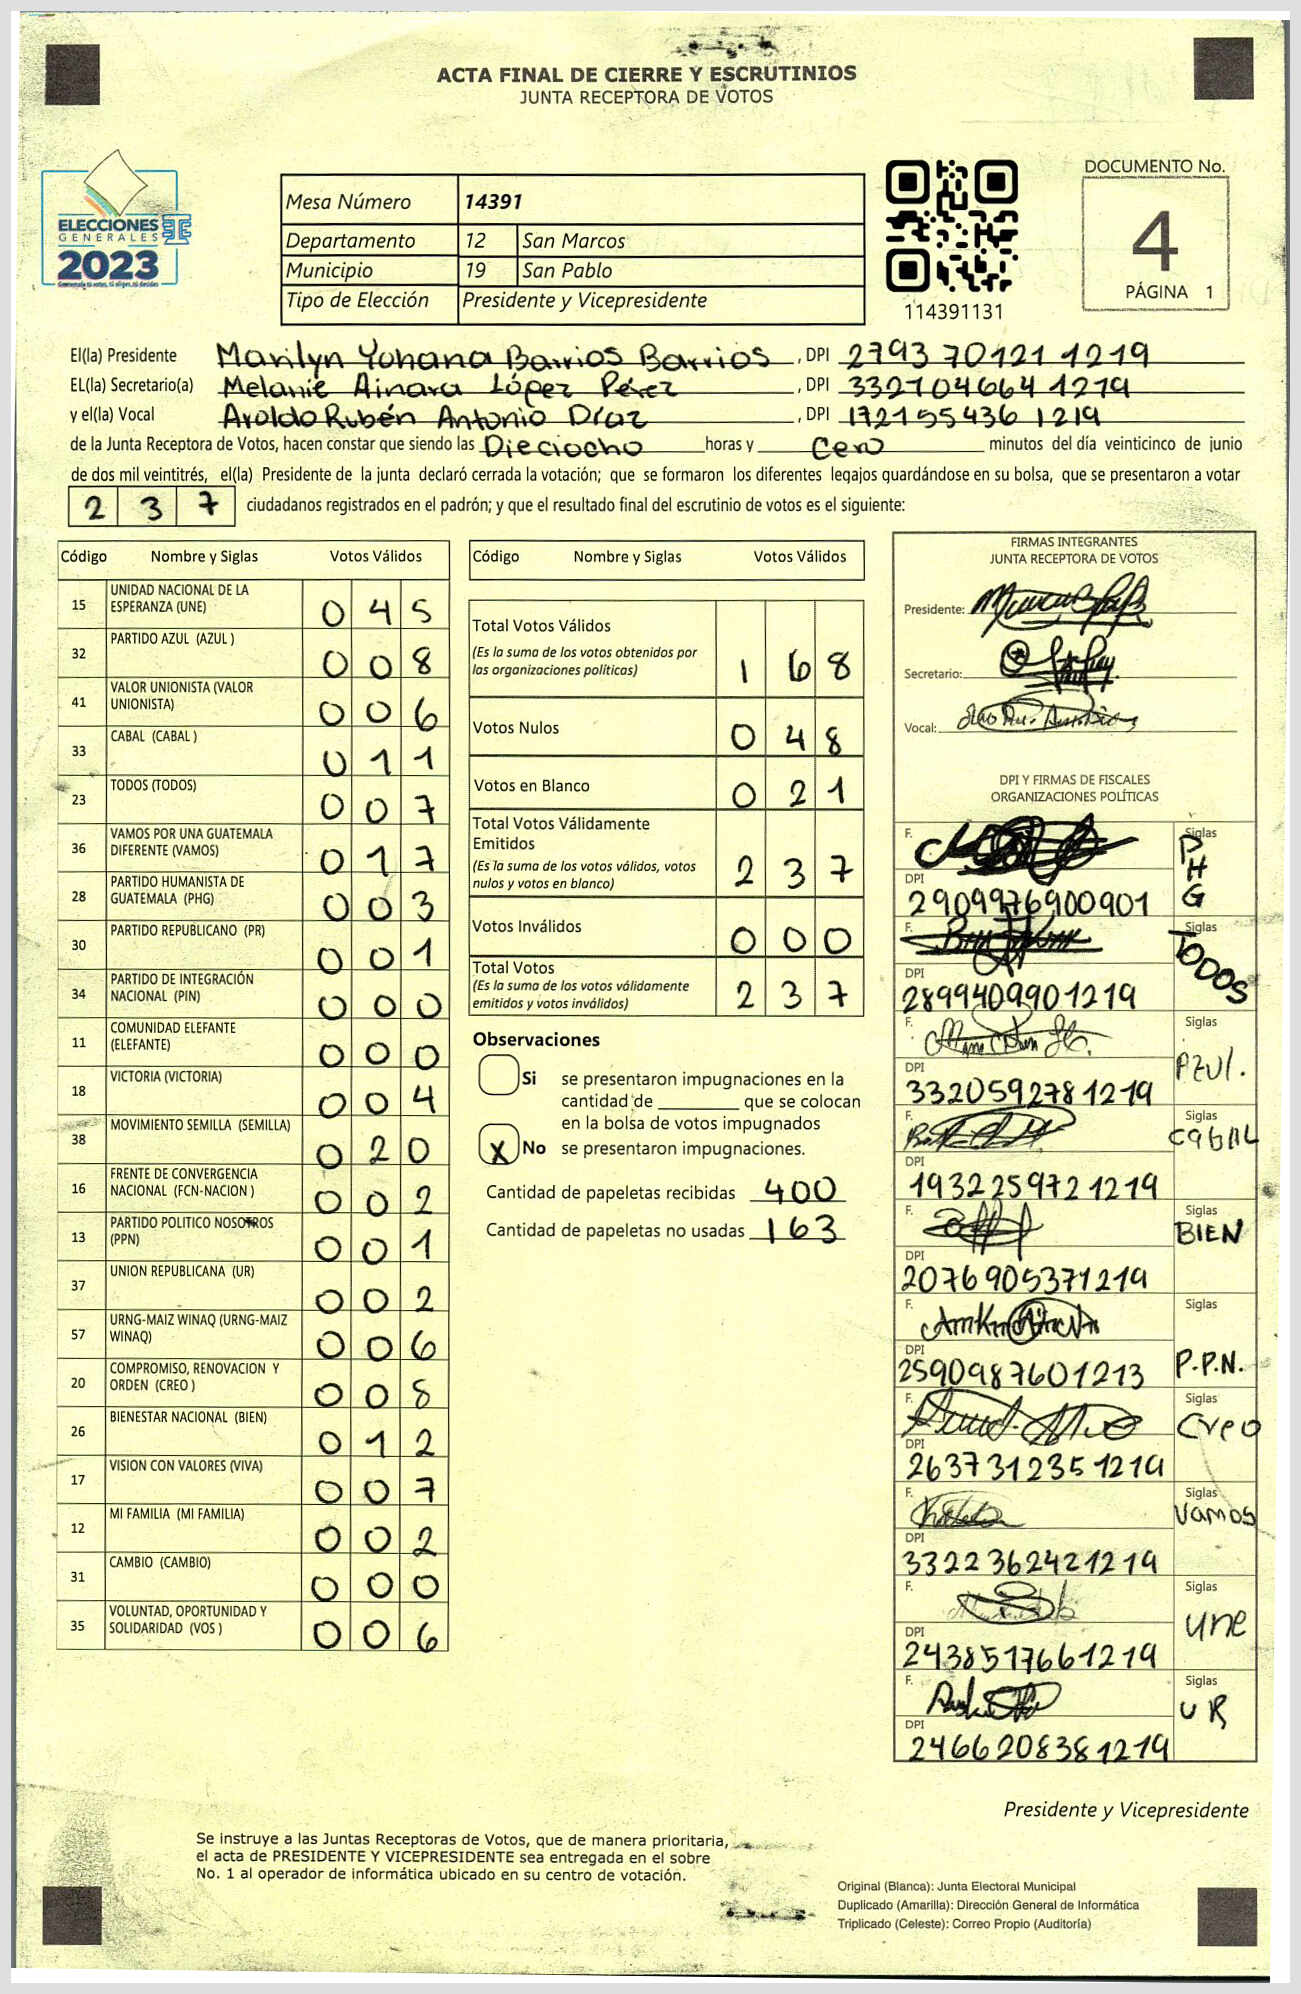 ACTA FINAL DE CIERRE Y ESCRUTINIOS
JUNTA RECEPTORA DE VOTOS
ELECCIONES
GENERALES
2023
Mesa Número 14391
Departamento 12 San Marcos
Municipio 19 San Pablo
Tipo de Elección Presidente y Vicepresidente
114391131
DOCUMENTO No.
4
PÁGINA 1
El(la) Presidente Marilyn Yohana Barrios Barrios, DPI 2793 70121 1219
EL(la) Secretario(a) Melanie Ainara López Pérez, DPI 332104664 1219
y el(la) Vocal Aroldo Rubén Antonio Díaz, DPI 172155436 1219
de la Junta Receptora de Votos, hacen constar que siendo las Dieciocho horas y Cero minutos del día veinticinco de junio
de dos mil veintitrés, el(la) Presidente de la junta declaró cerrada la votación; que se formaron los diferentes legajos guardándose en su bolsa, que se presentaron a votar
237 ciudadanos registrados en el padrón; y que el resultado final del escrutinio de votos es el siguiente:
Código Nombre y Siglas Votos Válidos
15 UNIDAD NACIONAL DE LA ESPERANZA (UNE) 045
32 PARTIDO AZUL (AZUL ) 008
41 VALOR UNIONISTA (VALOR UNIONISTA) 006
33 CABAL (CABAL ) 011
23 TODOS (TODOS) 007
36 VAMOS POR UNA GUATEMALA DIFERENTE (VAMOS) 017
28 PARTIDO HUMANISTA DE GUATEMALA (PHG) 003
30 PARTIDO REPUBLICANO (PR) 001
34 PARTIDO DE INTEGRACIÓN NACIONAL (PIN) 000
11 COMUNIDAD ELEFANTE (ELEFANTE) 000
18 VICTORIA (VICTORIA) 004
38 MOVIMIENTO SEMILLA (SEMILLA) 020
16 FRENTE DE CONVERGENCIA NACIONAL (FCN-NACION ) 002
13 PARTIDO POLITICO NOSOTROS (PPN) 001
37 UNION REPUBLICANA (UR) 002
57 URNG-MAIZ WINAQ (URNG-MAIZ WINAQ) 006
20 COMPROMISO, RENOVACION Y ORDEN (CREO ) 008
26 BIENESTAR NACIONAL (BIEN) 012
17 VISION CON VALORES (VIVA) 007
12 MI FAMILIA (MI FAMILIA) 002
31 CAMBIO (CAMBIO) 000
35 VOLUNTAD, OPORTUNIDAD Y SOLIDARIDAD (VOS ) 006
Código Nombre y Siglas Votos Válidos
Total Votos Válidos
(Es la suma de los votos obtenidos por
las organizaciones políticas) 168
Votos Nulos 048
Votos en Blanco 021
Total Votos Válidamente
Emitidos
(Es la suma de los votos válidos, votos
nulos y votos en blanco) 237
Votos Inválidos 000
Total Votos
(Es la suma de los votos válidamente
emitidos y votos inválidos) 237
Observaciones
Si se presentaron impugnaciones en la
cantidad de ________ que se colocan
en la bolsa de votos impugnados
X No se presentaron impugnaciones.
Cantidad de papeletas recibidas 400
Cantidad de papeletas no usadas 163
FIRMAS INTEGRANTES
JUNTA RECEPTORA DE VOTOS
Presidente:
Secretario:
Vocal:
DPI Y FIRMAS DE FISCALES
ORGANIZACIONES POLÍTICAS
F. Siglas PHG
DPI 2909976900901
F. Siglas TODOS
DPI 2899409901219
F. Siglas AZUL.
DPI 3320592781219
F. Siglas CABAL
DPI 1932259721219
F. Siglas BIEN
DPI 2076905371219
F. Siglas P.P.N.
DPI 2590987601213
F. Siglas Creo
DPI 2637312351219
F. Siglas Vamos
DPI 3322362421219
F. Siglas une
DPI 2438517661219
F. Siglas UR
DPI 2466208381219
Presidente y Vicepresidente
Se instruye a las Juntas Receptoras de Votos, que de manera prioritaria,
el acta de PRESIDENTE Y VICEPRESIDENTE sea entregada en el sobre
No. 1 al operador de informática ubicado en su centro de votación.
Original (Blanca): Junta Electoral Municipal
Duplicado (Amarilla): Dirección General de Informática
Triplicado (Celeste): Correo Propio (Auditoría)